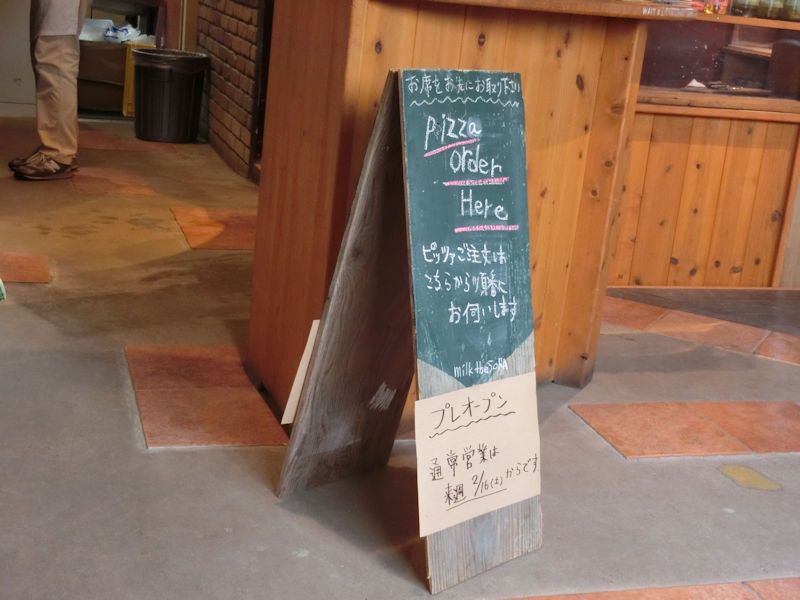 お席をお先にお取り下さい
pizza
order
Here
ピッツァご注文は
こちらから順番に
お伺いします
milktheSORA
プレオープン
通常営業は
来週 2/16(土)からです